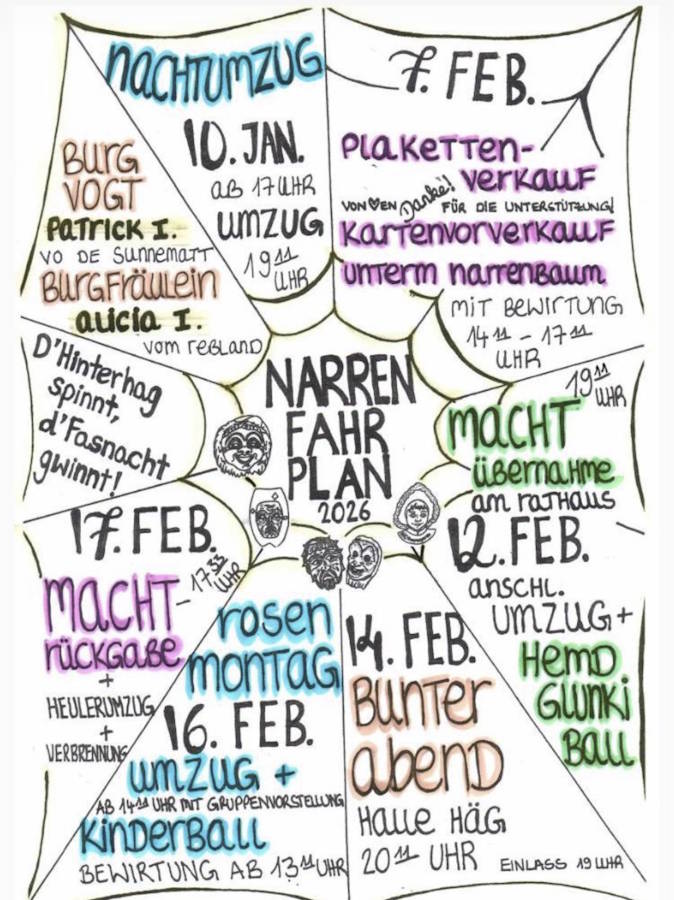 NARREN
FAHR
PLAN
2026
NACHTUMZUG
10. JAN.
AB 17 UHR
UMZUG
19 11
UHR
7. FEB.
PLAKETTEN-
VERKAUF
VON ♥EN Danke! FÜR DIE UNTERSTÜTZUNG!
KARTENVORVERKAUF
UNTERM NARRENBAUM
MIT BEWIRTUNG
14 11 - 17 11
UHR
19 11
UHR
MACHT
ÜBERNAHME
AM RATHAUS
12. FEB.
ANSCHL.
UMZUG +
HEMD
GLUNKI
BALL
14. FEB.
BUNTER
ABEND
HALLE HÄG
20 11 UHR
EINLASS 19 UHR
ROSEN
MONTAG
16. FEB.
UMZUG +
AB 14 11 UHR MIT GRUPPENVORSTELLUNG
KINDERBALL
BEWIRTUNG AB 13 11 UHR
17. FEB.
17 33
UHR
MACHT-
RÜCKGABE
+
HEULERUMZUG
+
VERBRENNUNG
D'Hinterhag
spinnt,
d'Fasnacht
gwinnt!
BURG
VOGT
PATRICK I.
VO DE SUNNEMATT
BURGFRÄULEIN
ALICIA I.
VOM REBLAND